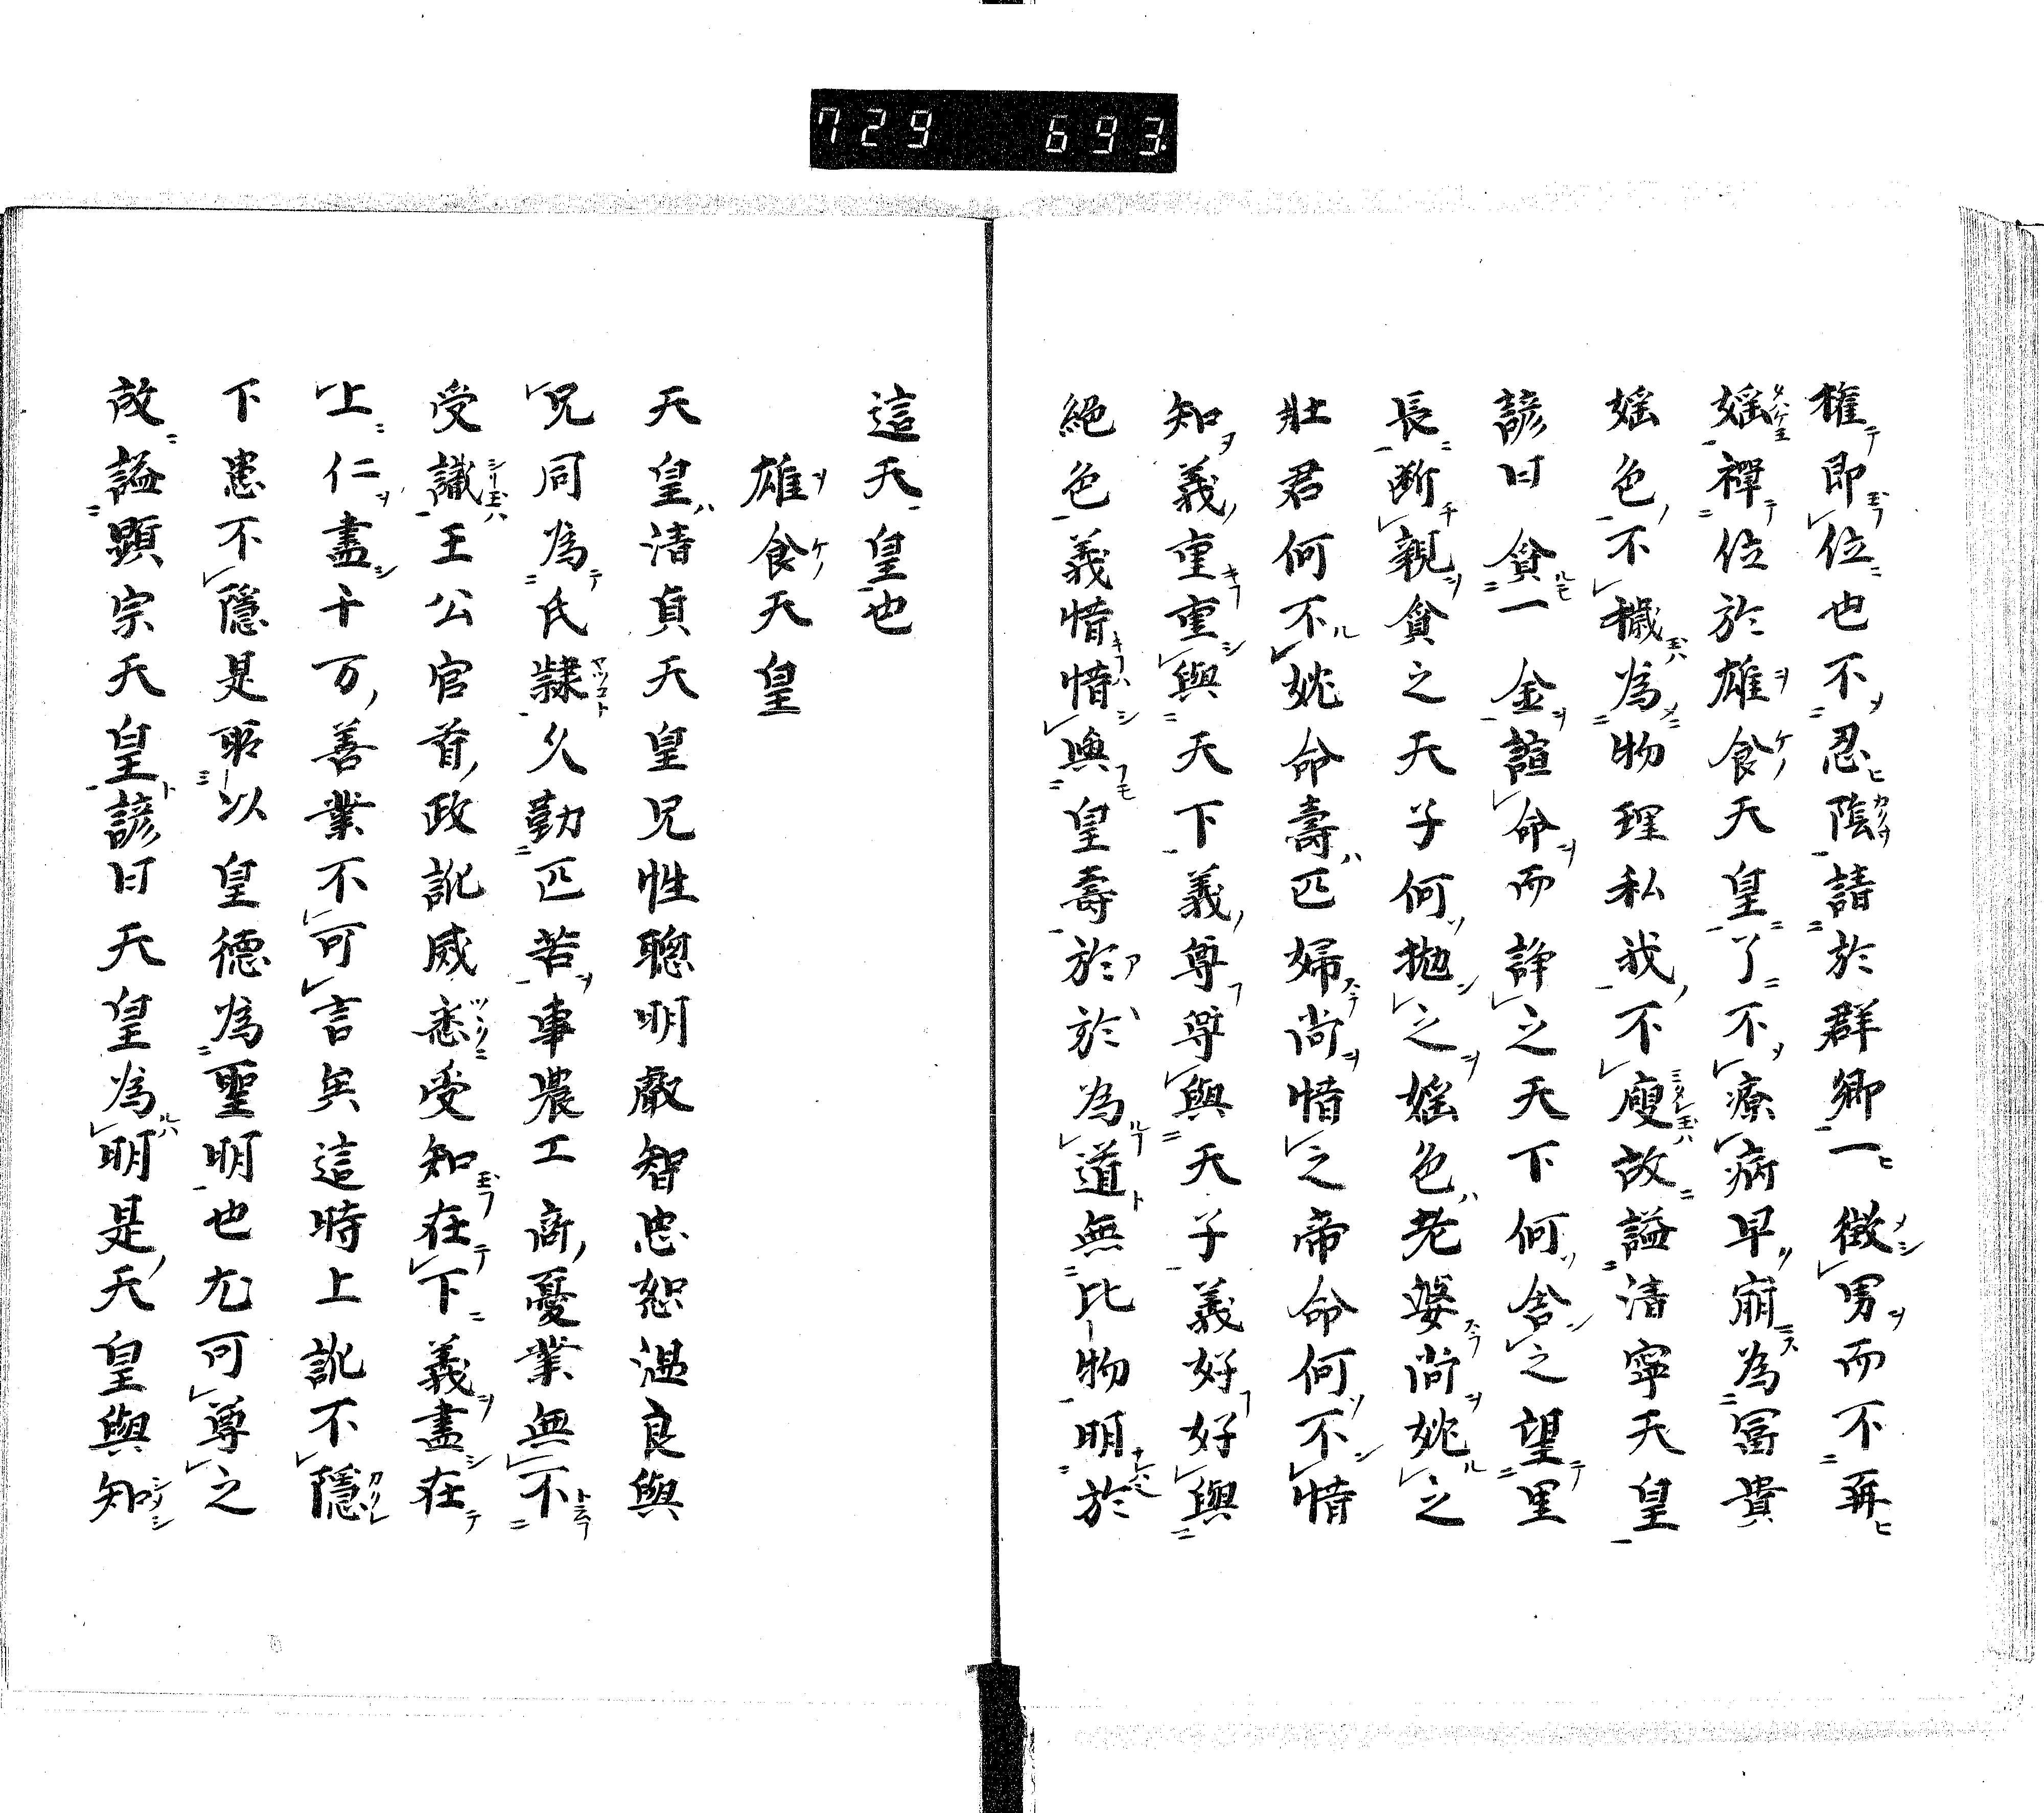 729 693
権即位也不忍陰請於群卿一徴男而不再
婬禪位於雄食天皇了不療病早崩為冨貴
婬色不穢為物理私我不廋故謚清寧天皇
諺曰貧一金諠命而諍之天下何舎之望里
長断親貪之天子何抛之婬色老婆尚姚之
壮君何不姚命壽匹婦尚惜之帝命何不惜
知義重重與天下義尊尊與天子義好好與
絕色義惜惜與皇壽於於為道無比物明於
這天皇也
雄食天皇
天皇清貞天皇兄性聰明叡智忠恕温良與
兄同為氏隸久勤匹苦事農工商憂業無不
受識王公官首政訛威悉受知在下義盡在
上仁盡千万善業不可言矣這時上訛不隱
下患不隱是所以皇德為聖明也尤可尊之
故謚顕宗天皇諺曰天皇為明是天皇與知